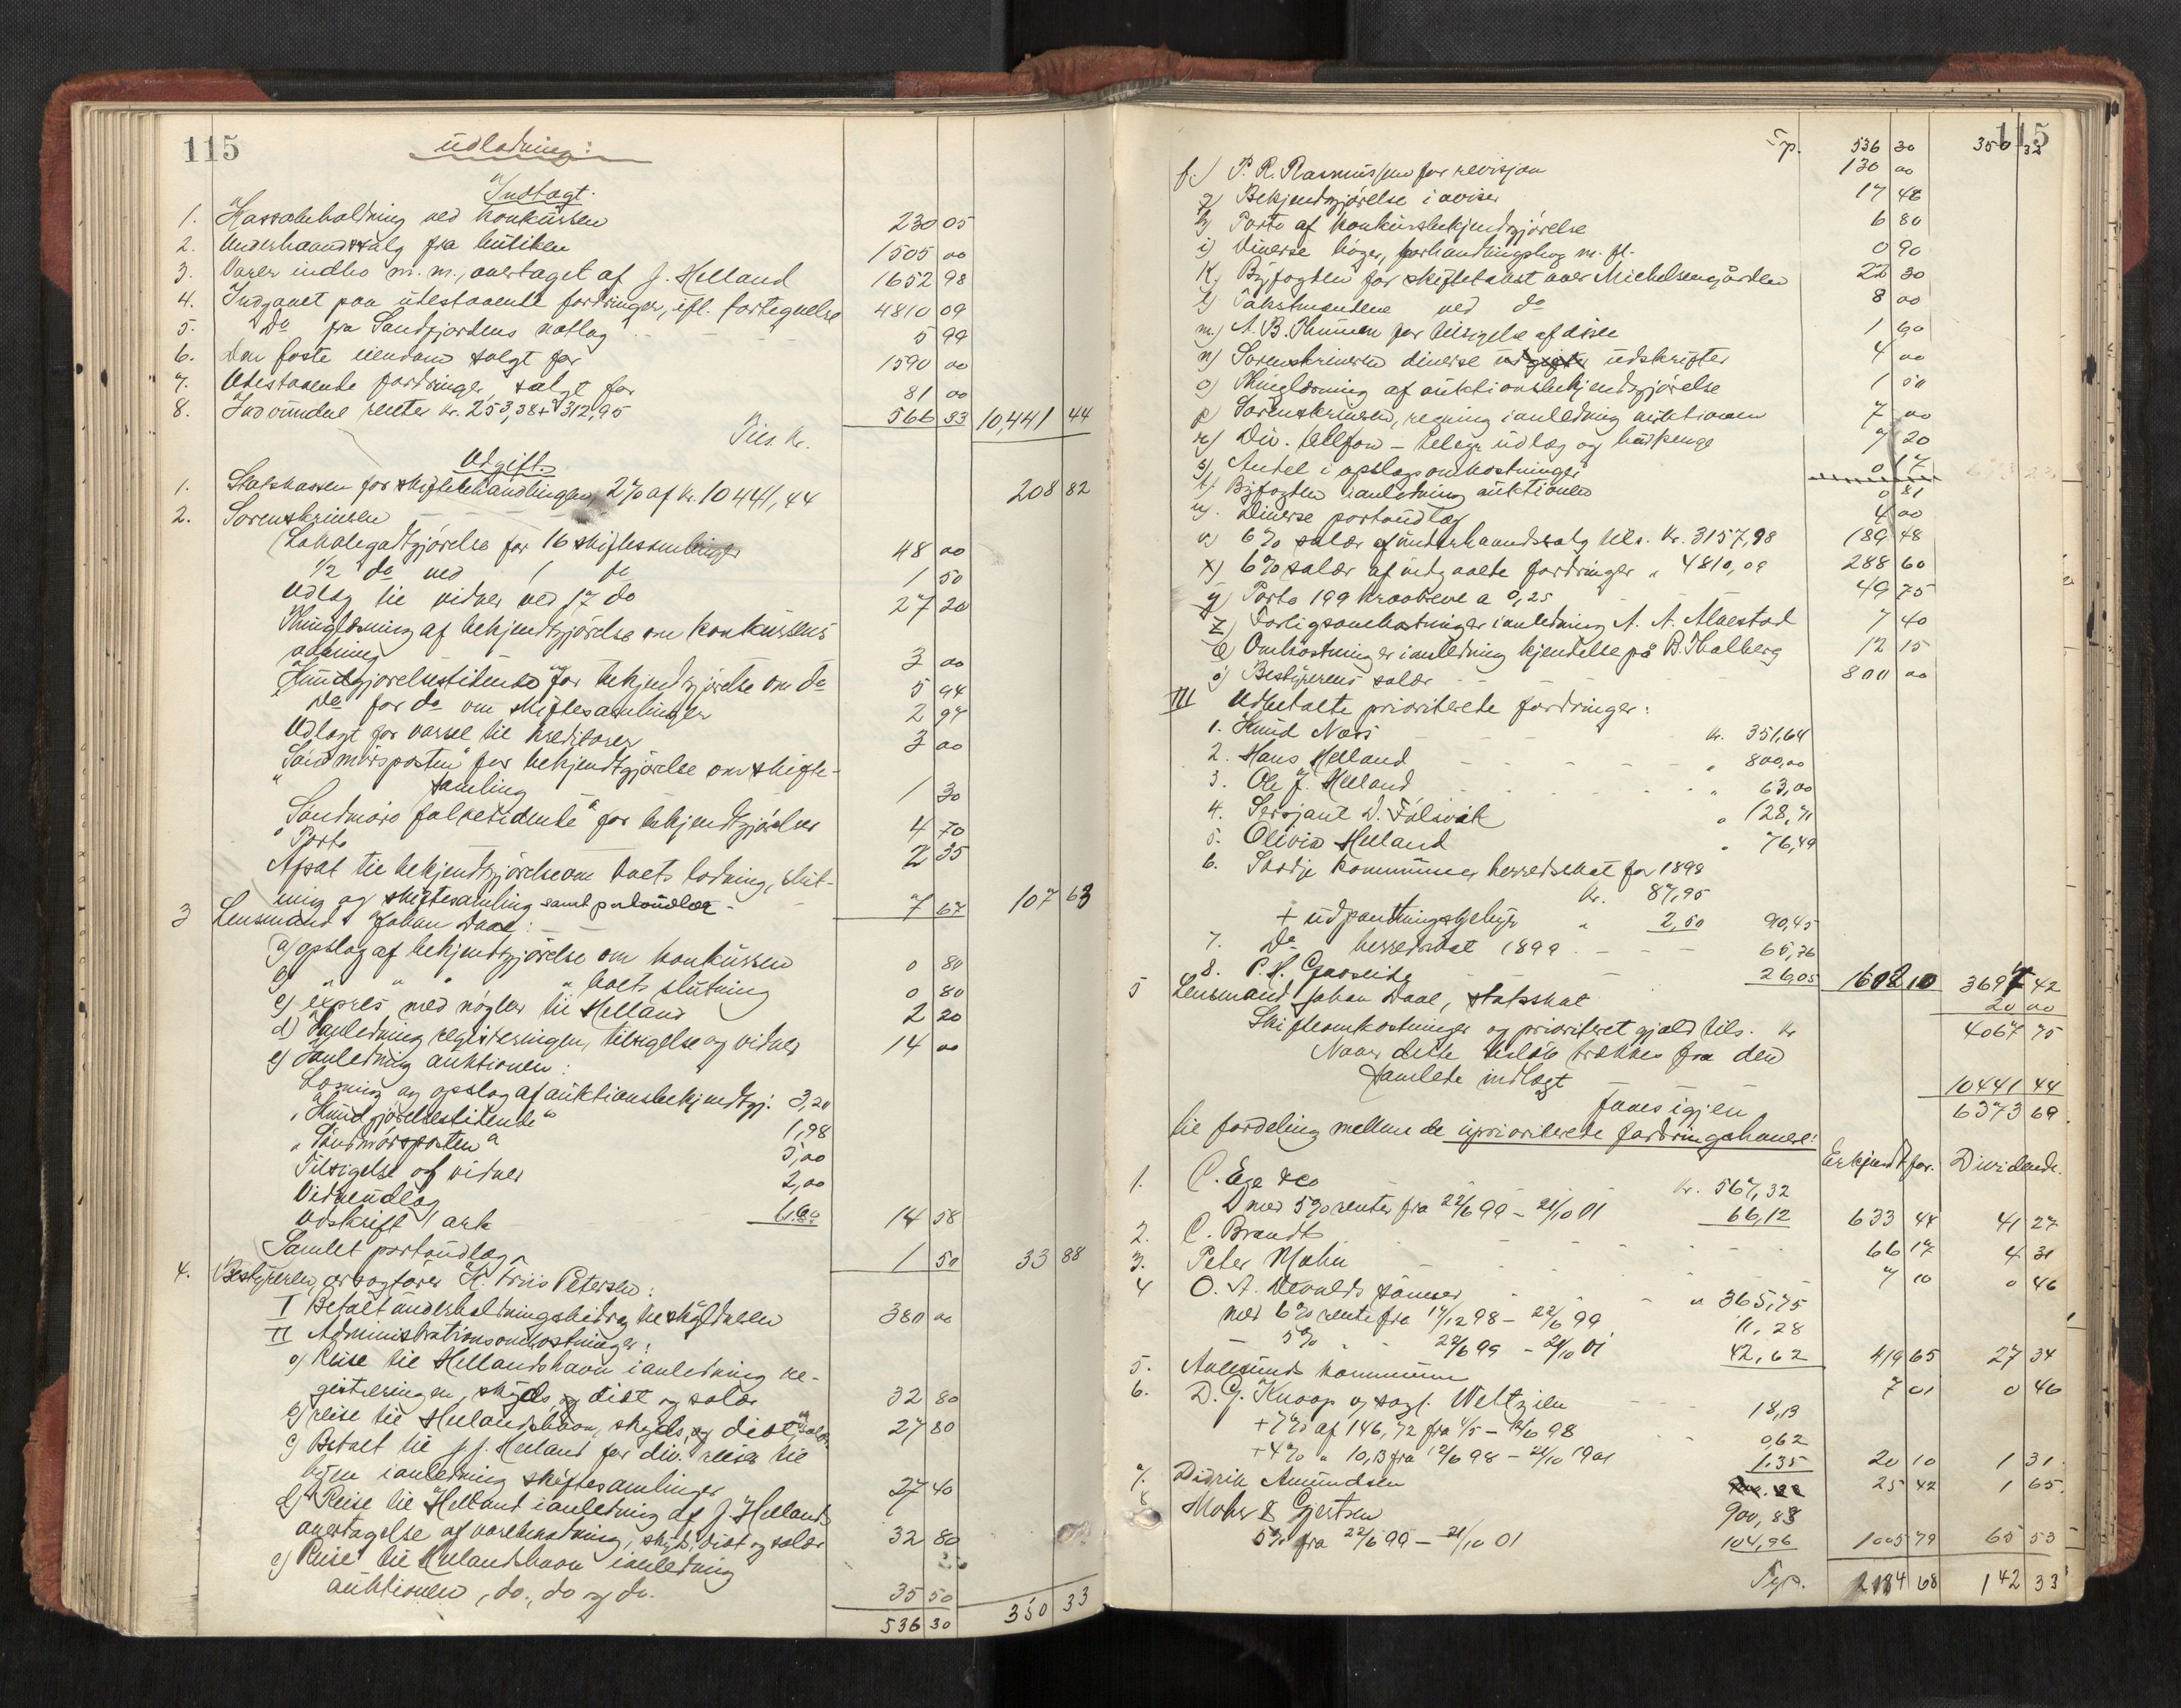 115
Udlodning:
Indtægt:
1. Kassabeholdning ved konkursen 230 05
2. Underhaandssalg fra butiken 1505 00
3. Varer indbo m. m., overtaget af J. Helland 1652 98
4. Indgaaet paa utestaaende fordringer, ifl. fortegnelse 4810 09
5. Do fra Sandfjordens notlag 5 99
6. Den faste eiendom solgt for 1590 00
7. Utestaaende fordringer solgt for 81 00
8. Indvundne renter kr. 253,38 + 312,95 566 33 10,441 44
Tils. kr.
Udgift.
1. Statskassen for skiftebehandlingen 2% af kr. 10441,44 208 82
2. Sorenskriveren
Lokalegodtgjörelse for 16 skiftesamlinger 48 00
1/2 do ved 1 do 1 50
Udlæg til vidner ved 17 do 27 20
Thinglæsning af bekjendtgjörelse om konkursens
aabning 3 00
"Kundgjörelsestidende" for bekjendtgjörelse om do 5 94
Do for do om skiftesamlinger 2 97
Udlagt for varsel til kreditorer 3 00
"Söndmörsposten" for bekjendtgjörelse om skifte-
samling 1 30
"Söndmöre folketidende" for bekjendtgjörelser 4 70
Porto 2 35
Afsat til bekjendtgjörelse om boets lodning, slut-
ning og skiftesamling samt portoudlæg 7 67 107 63
3 Lensmand Johan Daae:
a) opslag af bekjendtgjörelse om konkursen 0 80
b) " " " " boets slutning 0 80
c) expres med nögler til Helland 2 20
d) Ianledning registreringen, tilsigelse og vidner 14 00
e) Ianledning auktionen:
Læsning og opslag af auktionsbekjendtgj. 3,20
"Kundgjörelsestidende" 1,98
"Söndmörsposten" 3,00
Tilsigelse af vidner 2,00
Vidneudlæg
Udskrift 1 ark 14 58
Samlet portoudlæg 1 50 33 88
4. Bestyreren, orsagförer H. Friis Petersen:
I Betalt underholdningsbidrag til skyldneren 380 00
II Administrationsomkostninger:
a) Reise til Hellandshavn ianledning re-
gistreringen, skyds, diæt og salær 32 80
b) reise til Hellandshavn, skyds, diæt, og salær 27 80
c) Betalt til J. J. Helland for div. reiser til
byen ianledning skiftesamlinger 27 40
d) Reise til Helland ianledning af J. Hellands
overtagelse af varebeholdning, skyds, diæt og salær 32 80
e) Reise til Hellandshavn ianledning
auktionen, do, do og do. 35 50
536 30 350 33
115
Tp. 536 30 350 32
f.) P. R. Rasmussen for revisjon 130 00
g) Bekjendtgjörelse i aviser 17 46
h) Porto af konkursbekjendtgjörelse 6 80
i) Diverse böger, forhandlingsbog m. fl. 0 90
k) Byfogden for skiftetakst over Michelsengården 22 30
l) Takstmændene ved do 8 00
m) A. B. Thunem for tilsigelse af disse 1 60
n) Sorenskriveren diverse udskrifter 4 00
o) Thinglæsning af auktionsbekjendtgjörelse 1 50
p) Sorenskriveren, regning ianledning auktionen 7 00
r) Div. telefon- telegr. udlæg og budpenge 7 20
s) Andel i opslagsomkostninger 0 17
t) Byfogden ianledning auktionen 0 81
u) Diverse portoudlæg 4 00
v) 6% salær af underhaandssalg tils. kr. 3157,98 189 48
x) 6% salær af indgaaede fordringer " 4810,09 288 60
y) Porto 199 kravbreve a 0,25 49 75
z) Forligsomkostninger ianledning A. A. Alnestad 7 40
æ) Omkostninger ianledning kjendelse på B. Thalberg 12 15
ö) Bestyrerens salær 800 00
III Udbetalte prioriterede fordringer:
1. Knud Næss kr. 351,64
2. Hans Helland " 800,00
3. Ole J. Helland " 63,00
4. Sersjant D. Falsvik " 128,71
5. Olivia Helland " 76,49
6. Skodje kommunes herredsskat for 1898
kr. 87,95
+ udpantningsgebyr " 2,50 90,45
7. Do herredsskat 1899 65,76
8. P. H. Gjæseide 26,05 1602 10 3697 42
5 Lensmand Johan Daae, statsskat 20 00
Skifteomkostninger og prioriteret gjæld tils. kr 4067 75
Naar dette belöb trækkes fra den
samlede indtægt 10441 44
faaes igjen 6373 69
til fordeling mellem de uprioriterede fordringshavere:
Erkjendt for. Dividende.
1. C. Ege & Co kr. 567,32
med 5% renter fra 22/6 99 - 21/10 01 66,12 633 44 41 27
2. C. Brandt 66 17 4 31
3. Peter Mohn 7 10 0 46
4 O. A. Devolds sönner " 365,75
med 6% rente fra 17/12 98 - 22/6 99 11,28
- 5% " " 22/6 99 - 21/10 01 42,62 419 65 27 34
5. Aalesunds kommune 7 01 0 46
6. D. G. Knoop v/ sagf. Weltzien 18,13
+ 7% af 146,72 fra 4/5 - 12/6 98 0,62
+ 4% " 10,13 fra 12/6 98 - 21/10 1901 1.35 20 10 1 31
7. Didrik Amundsen 25 42 1 65
8 Mohr & Gjertsen 900,83
5% fra 22/6 99 - 21/10 01 104,96 1005 79 65 53
Tsp. 2184 68 142 33